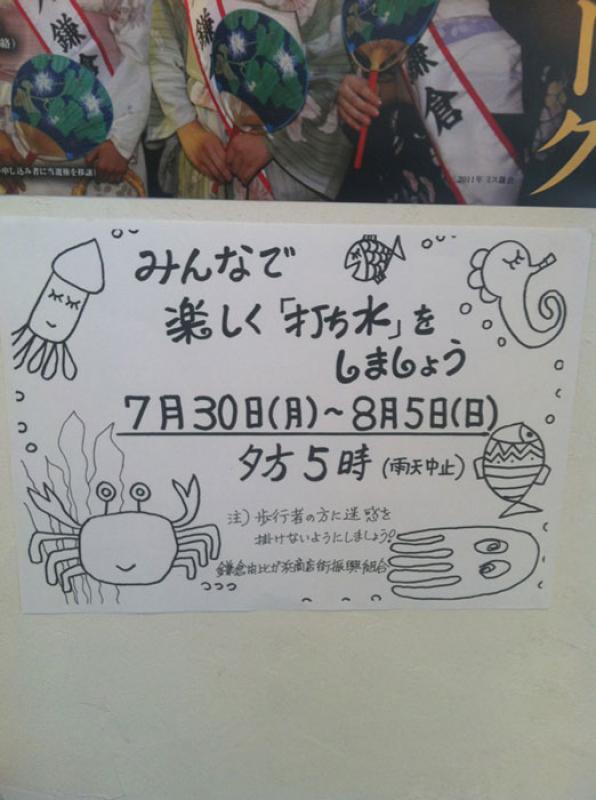 鎌倉
鎌倉
鎌倉
ーク
申し込み者に当選権を移譲)
2011年ミス鎌倉
みんなで
楽しく「打ち水」を
しましょう
7月30日(月)~8月5日(日)
夕方5時(雨天中止)
注)歩行者の方に迷惑を
掛けないようにしましょう。
鎌倉由比ガ浜商店街振興組合